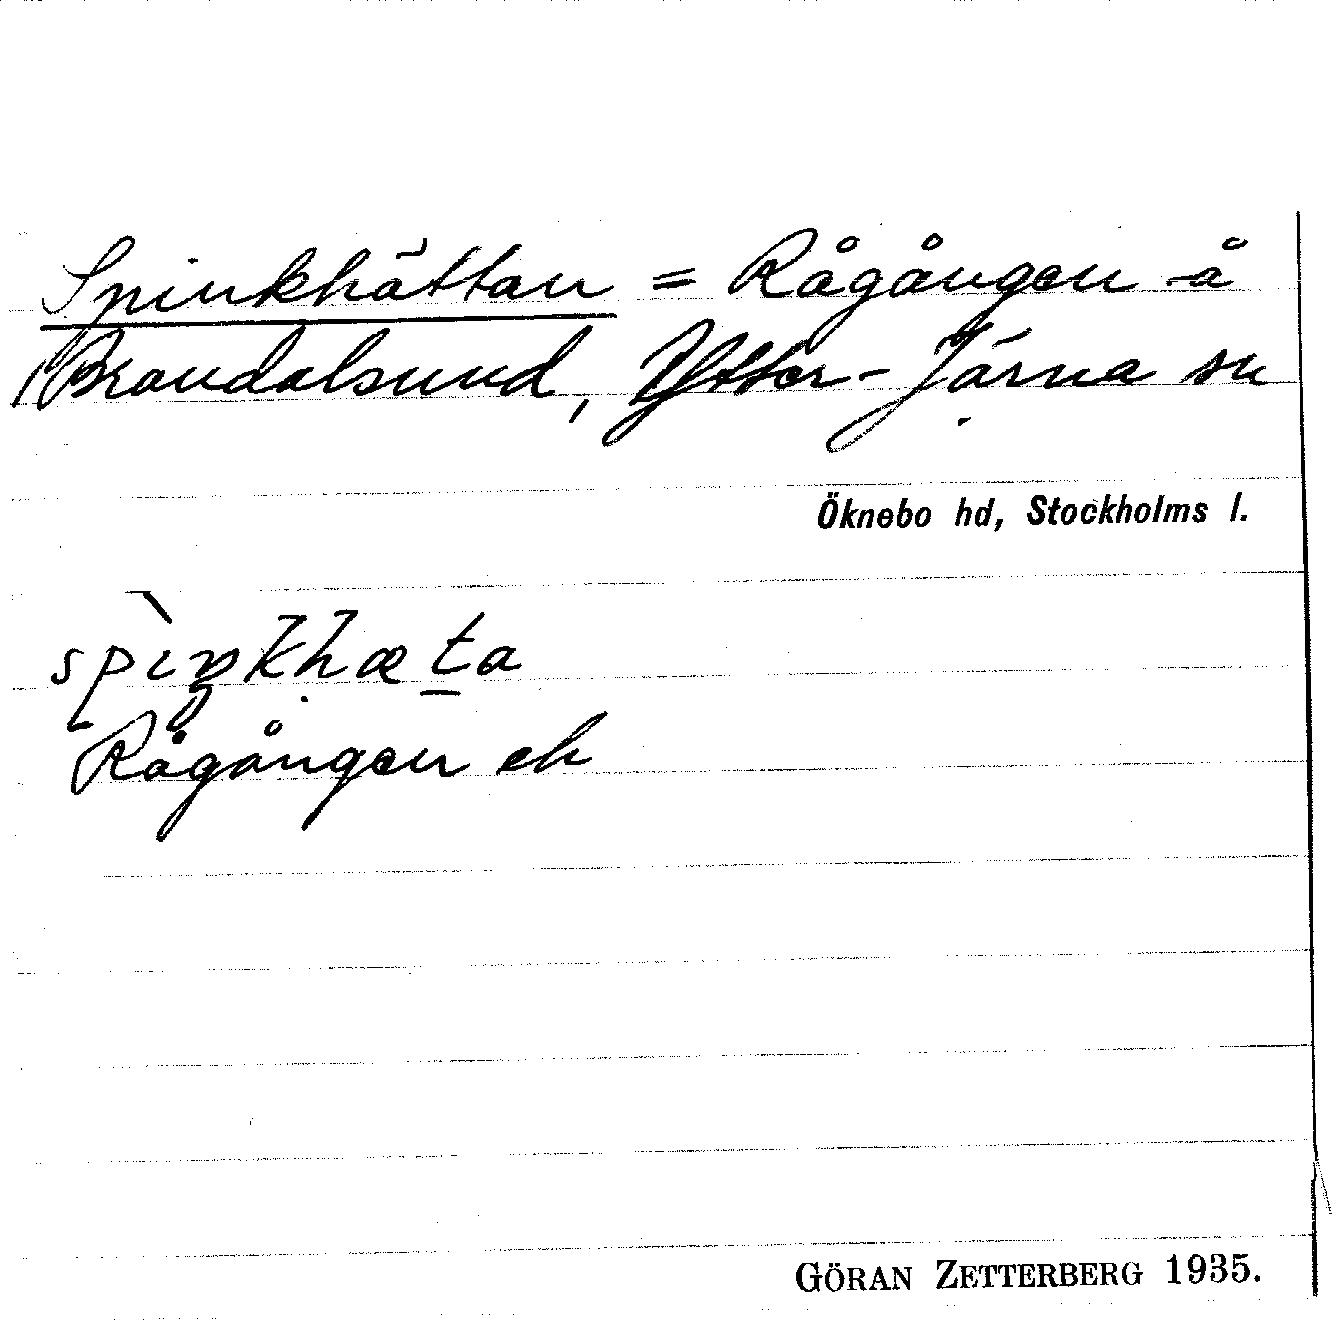 Spinkhättan = Rågången å
Brandalsund, Ytter-Järna sn
Öknebo hd, Stockholms l.
spìŋkhæta
Rågången ek
GÖRAN ZETTERBERG 1935.